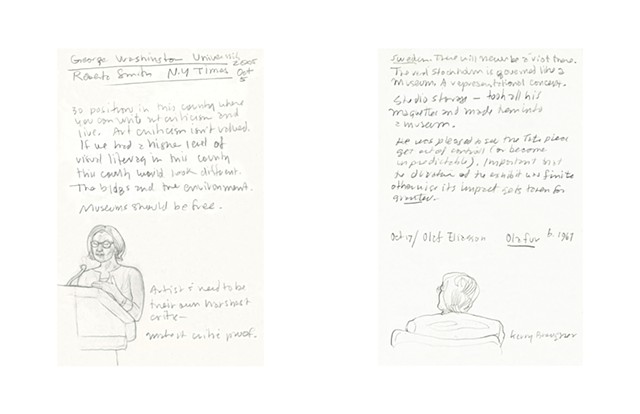 George Washington Universit
Roberta Smith N.Y Times 2005 Oct 5
30 positions in this country where
you can write art criticism and
live. Art criticism isn't valued.
If we had a higher level of
visual literacy in this country
this country would look different.
The bldgs and the environment.
Museums should be free.
Artists need to be
their own harshest
critic—
almost critic proof.
Sweden. There will never be a riot there.
The mid Stockholm is governed like a
Museum. A representational concept.
Studio – took all his
and made them into
a museum.
He was pleased to see the Tate piece
get out of control (or become
unpredictable). Important that
the duration of the exhibit was finite
otherwise its impact gets taken for
granted.
Oct 17/ Olaf Eliasson Olafur b. 1967
Henry